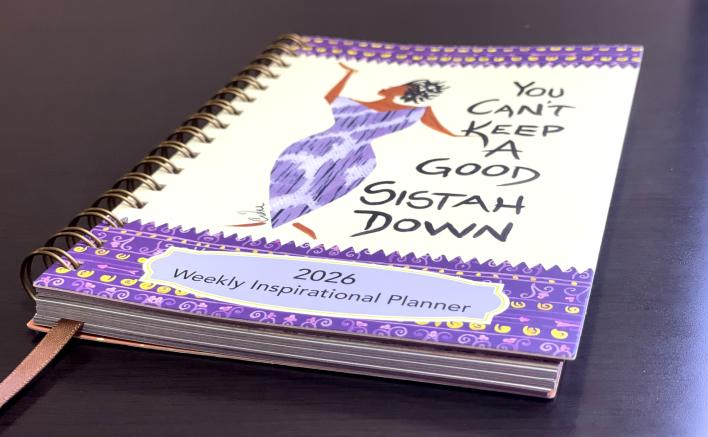 YOU
CAN'T
KEEP
A
GOOD
SISTAH
DOWN
2026
Weekly Inspirational Planner